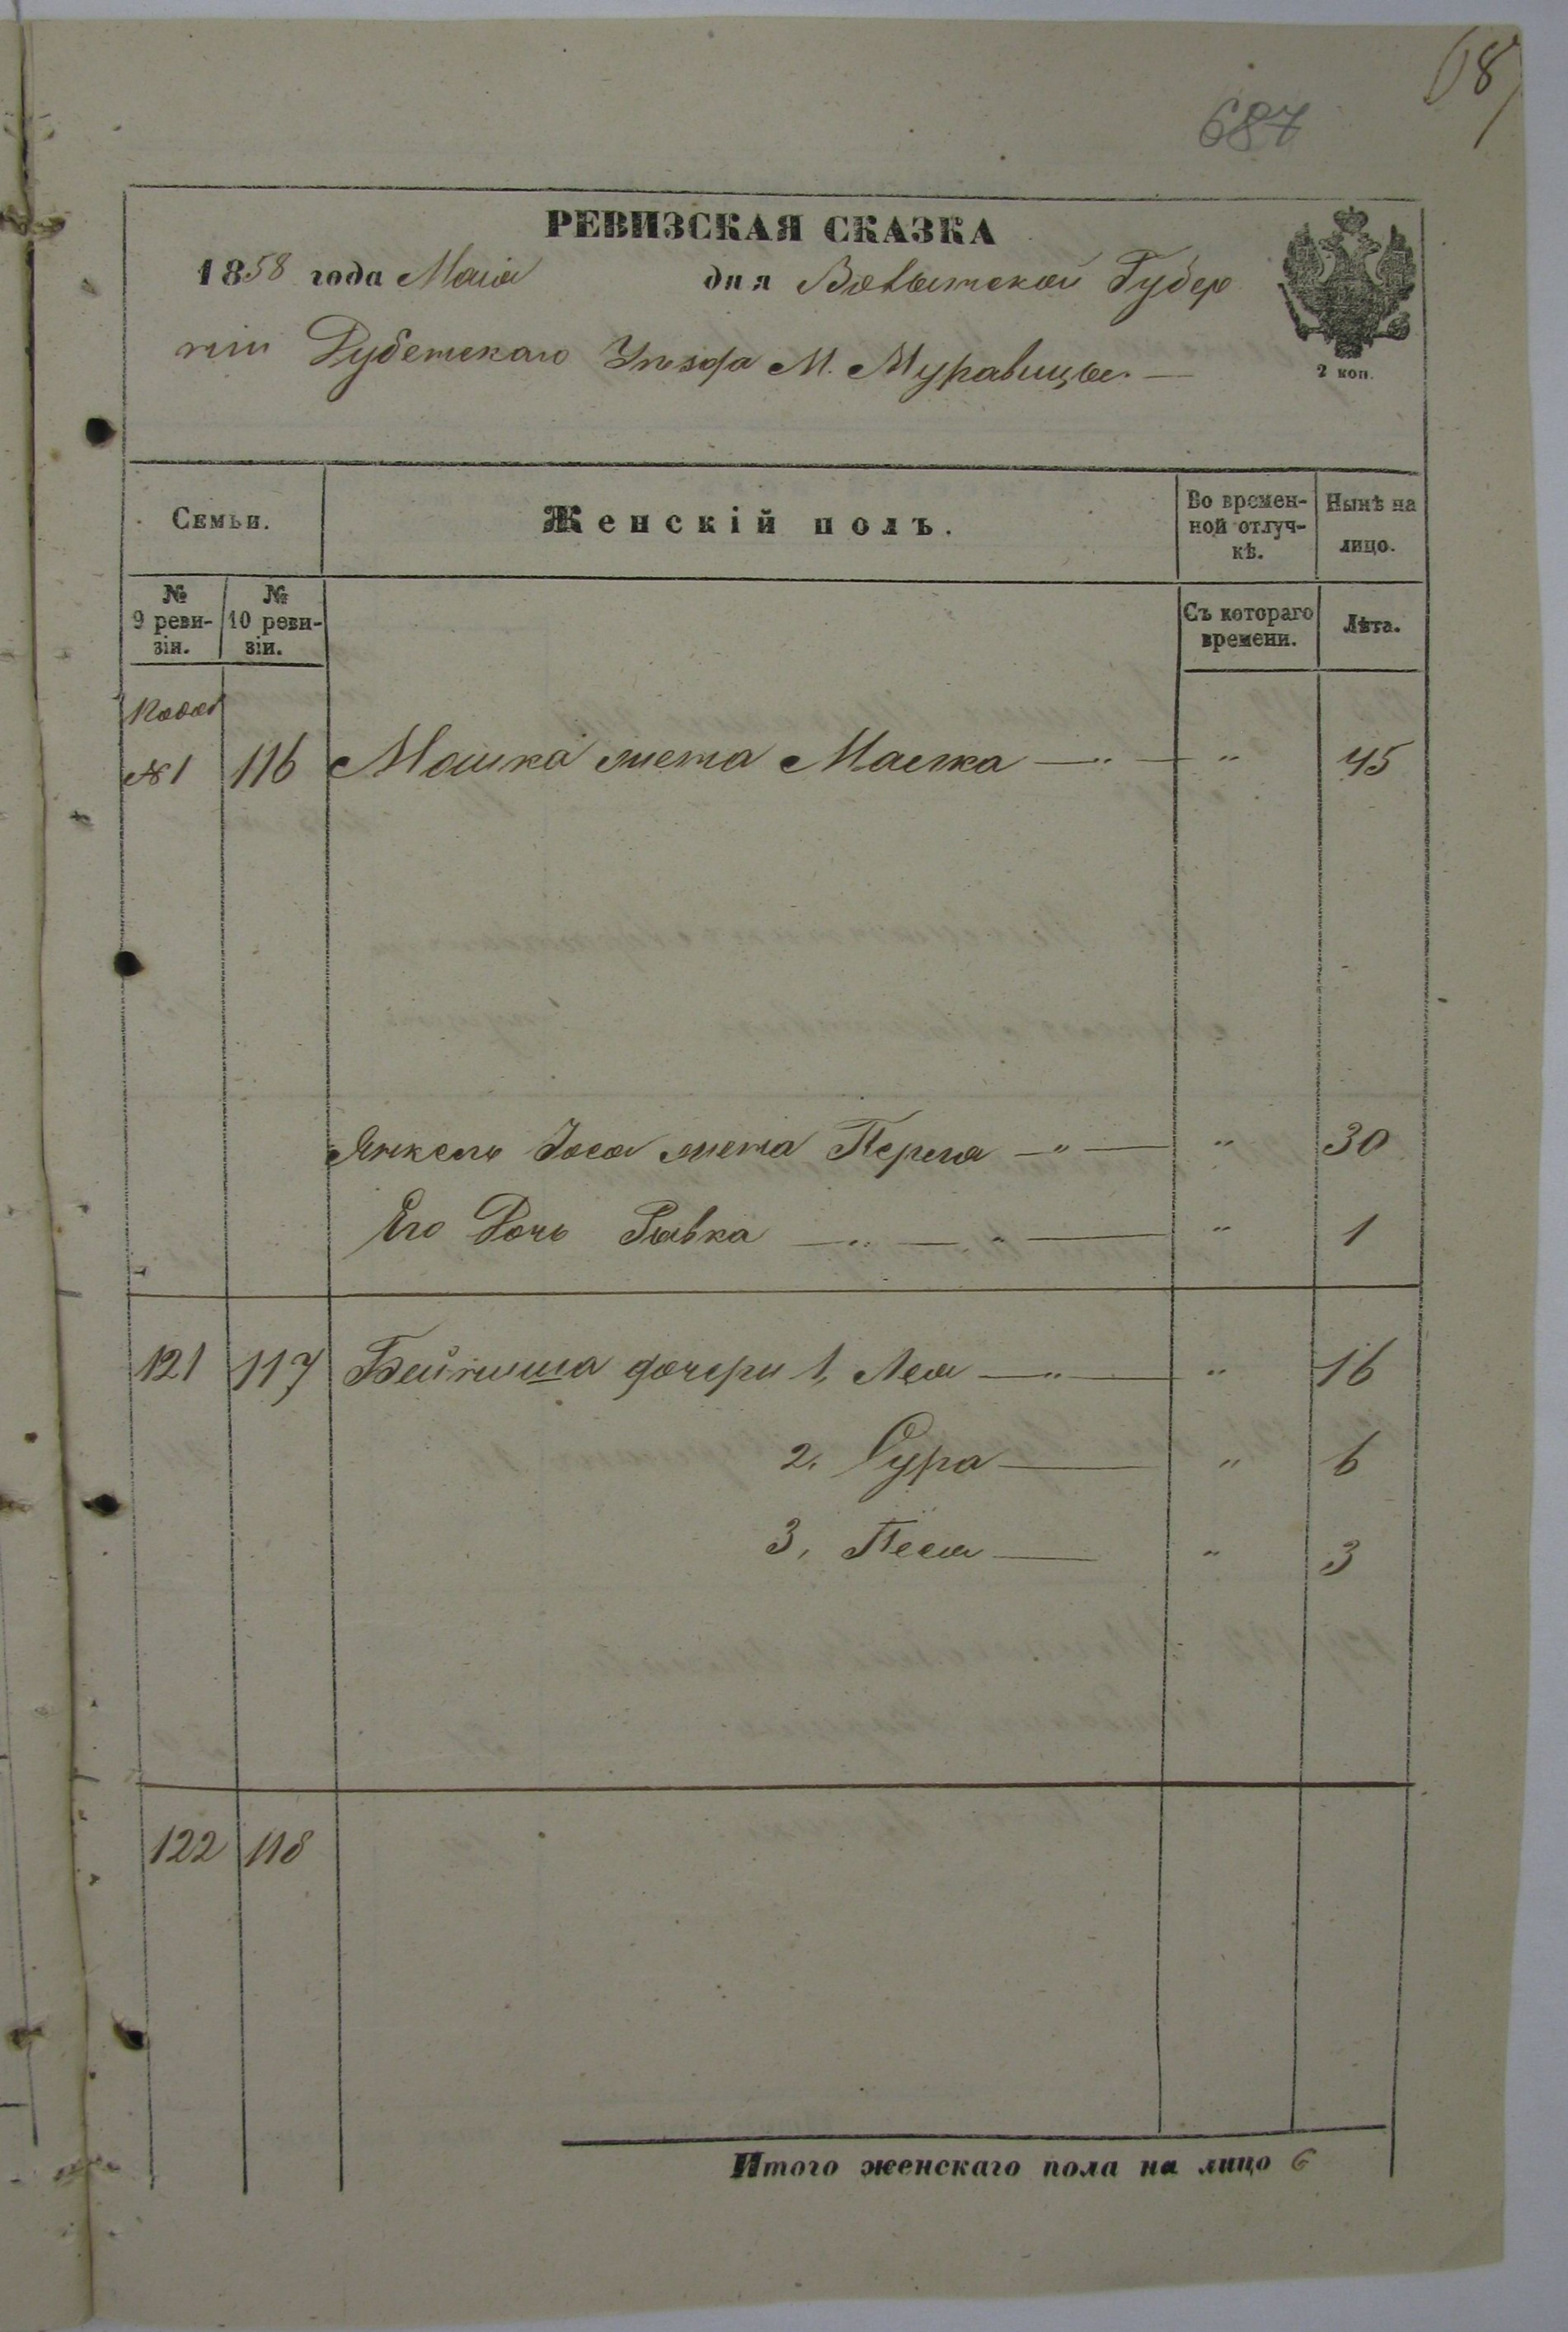 687
РЕВИЗСКАЯ СКАЗКА
1858 года Маія дня Волынской Губер
ніи Дубенскаго Уѣзда М. Муравицы. —
2 коп.
Семьи.
Женскій полъ.
Во времен-
ной отлуч-
кѣ.
Нынѣ на
лицо.
№
9 реви-
зіи.
№
10 реви-
зіи.
Съ котораго
времени.
Лѣта.
№1 116 Мошка жена Малка — " — " 45
Янкель Іоса жена Перля — " — " 30
Его Дочь Рывка — " — " — " 1
121 117 дочери 1, Лея — " — " 16
2. Сура — " 6
3, Песя — " 3
122 118
Итого женскаго пола на лицо 6